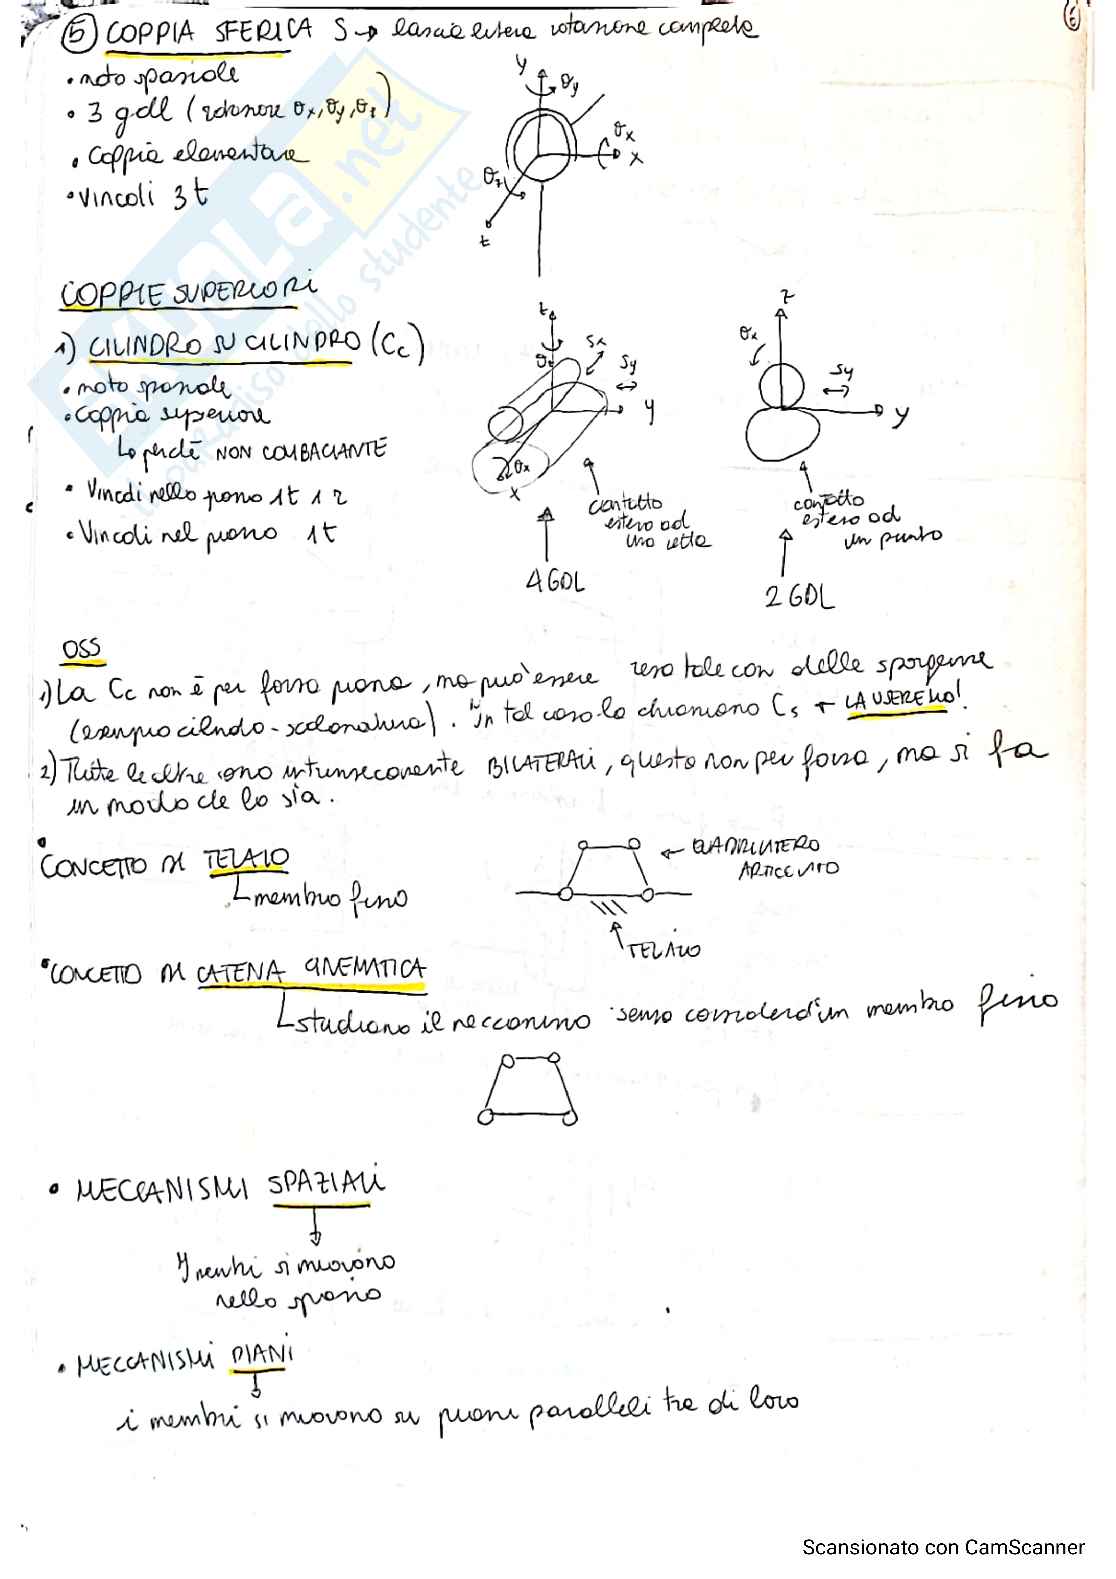 6
5 COPPIA SFERICA S → lascia libera rotazione completa
• moto spaziale
• 3 gdl (rotazione θx, θy, θz)
• Coppia elementare
• Vincoli 3t
y θy
θx
x
θz
z
COPPIE SUPERIORI
1) CILINDRO SU CILINDRO (Cc)
• moto spaziale
• Coppia superiore
↳ perché NON COMBACIANTE
• Vincoli nello spazio 1t 1r
• Vincoli nel piano 1t
z
θz
Sx
Sy
y
θx
x
contatto
esteso ad
una retta
4 GDL
z
θx
Sy
y
contatto
esteso ad
un punto
2 GDL
OSS
1) La Cc non è per forza piana, ma può essere resa tale con delle sporgenze
(esempio cilindro-scalanatura). In tal caso la chiamiamo Cs ← LA USEREMO!
2) Tutte le altre sono intrinsecamente BILATERALI, questa non per forza, ma si fa
in modo che lo sia.
• CONCETTO DI TELAIO
↳ membro fisso
← QUADRILATERO
ARTICOLATO
TELAIO
• CONCETTO DI CATENA CINEMATICA
↳ studiamo il meccanismo senza considerare un membro fisso
• MECCANISMI SPAZIALI
I membri si muovono
nello spazio
• MECCANISMI PIANI
i membri si muovono su piani paralleli tra di loro
SKUOLA.net
il paradiso dello studente
Scansionato con CamScanner